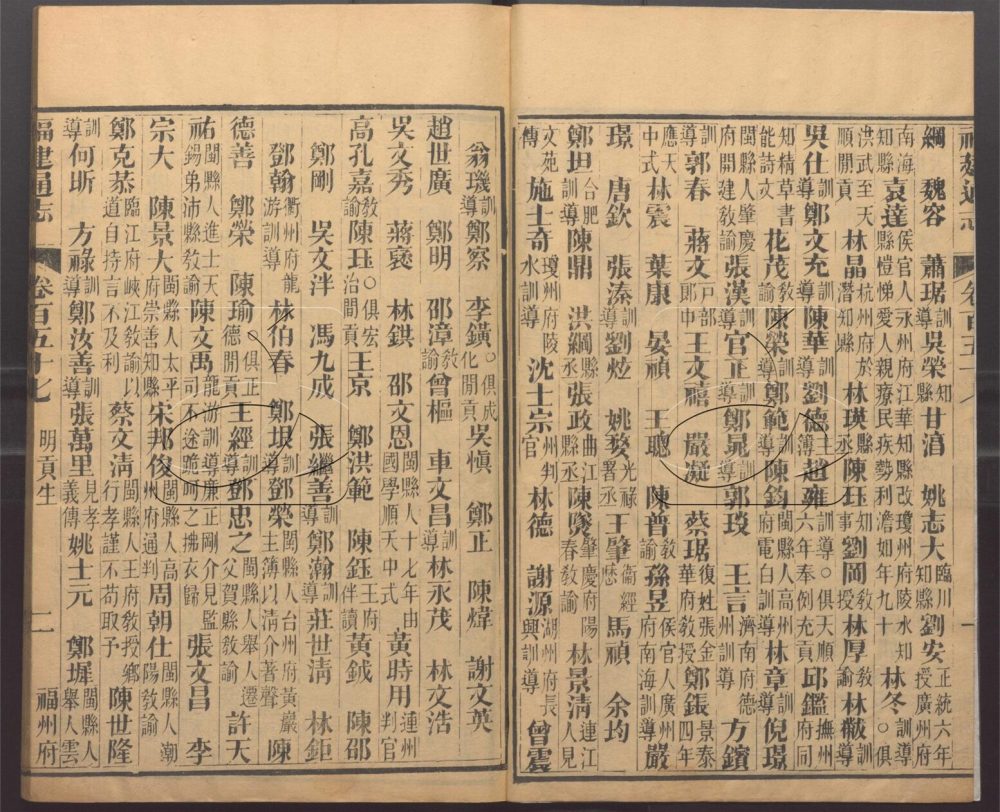 綱　魏容　蕭琚訓導吳榮知縣甘滳　姚志大臨川知縣劉安正統六年授廣州府
南海知縣袁達侯官人永州府江華知縣改瓊州府陵水知縣愷悌愛人親療民疾勢利澹如年九十林冬訓導○俱
洪武至天順閒貢林晶杭州府於潛知縣林瑛縣丞陳珏知事劉岡教授林厚教諭林黻訓導
吳仕訓導鄭文充訓導陳華　劉德主簿趙雍訓導○俱天順六年奉例充貢邱鑑撫州府同
知精草書能詩文花茂教諭陳榮訓導鄭範訓導陳鈞閩縣人高州府電白訓導林章訓導倪璟
閩縣人肇慶府開建教諭張漢訓導官正訓導鄭晁訓導郭琰　王言濟南府德平訓導方鑌
訓導郭春　蔣文戶部郎中王文禧　嚴凝　蔡琚復姓張金華府教授鄭鋹景泰四年
應天中式林震　葉康　晏頑　王聰　陳普教諭孫昱侯官人廣州府南海訓導嚴
璟　唐欽　張溱訓導劉炫　姚㛐光祿署丞王肇衞經歷馬頑　余均
鄭坦合肥訓導陳鼎　洪綱縣丞張政曲江縣丞陳隊肇慶府陽春教諭林景清連江人見
文苑傳施士奇瓊州府陵水訓導沈士宗州判官林德　謝源興湖州府長興訓導曾震
翁璣訓導鄭察　李鐄○俱成化閒貢吳愼　鄭正　陳煒　謝文英
趙世廣　鄭明　邵漳教諭曾樞　車文昌訓導林永茂　林文浩
吳文秀　蔣褎　林鉷　邵文恩閩縣人十七年由國學順天中式黃時用連州判官
高孔嘉教諭陳珏○俱宏治閒貢王京　鄭洪範　陳鈺王府伴讀黃鉞　陳邵
鄭剛　吳文泮　馮九成　張繼善訓導鄭瀚訓導莊世淸　林鉅
鄧翰衢州府龍游訓導林伯春　鄭垠訓導鄧榮閩縣人台州府黃巖主簿以淸介著聲陳
德善　鄭榮　陳瑜○俱正德閒貢王經訓導鄧忠之閩縣人舉人遷父賀縣教諭許天
祐閩縣人進士天錫弟沛縣教諭陳文禹龍游訓導廉正剛介見監司不途跪呵之拂衣歸張文昌　李
宗大　陳景大閩縣人太平府崇善知縣宋邦俊閩縣人高州府通判周朝仕閩縣人潮陽教諭
鄭克恭臨江府峽江教諭以道自持言不及利蔡文淸閩縣人王府教授鄉行孝謹不苟取予陳世隆
訓導何昕　方祿訓導鄭汝善訓導張萬里見孝義傳姚士元　鄭墀閩縣人舉人雲
福建通志　卷百五十七　明貢生　二　福州府